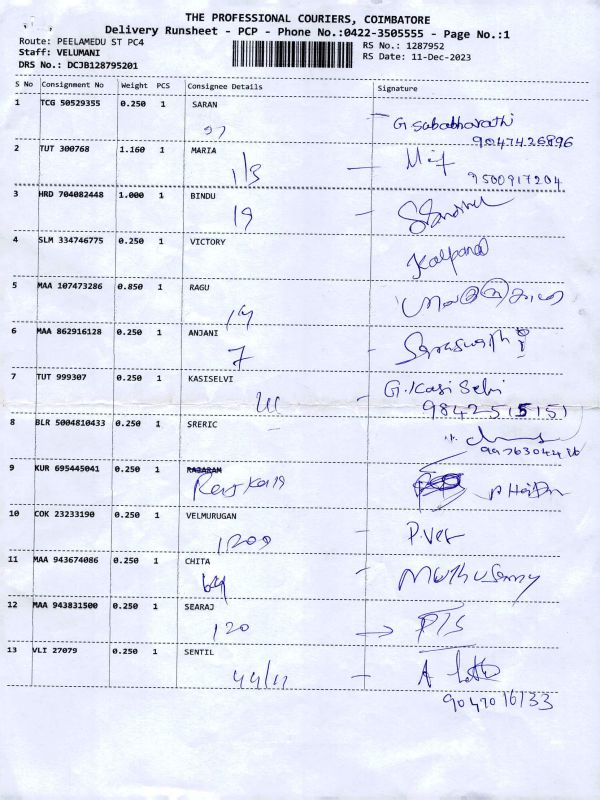 THE PROFESSIONAL COURIERS, COIMBATORE
Delivery Runsheet - PCP - Phone No.:0422-3505555 - Page No.:1
Route: PEELAMEDU ST PC4
RS No.: 1287952
Staff: VELUMANI
RS Date: 11-Dec-2023
DRS No.: DCJB128795201
S No Consignment No Weight PCS Consignee Details Signature
1 TCG 50529355 0.250 1 SARAN
G Sababharathi
9047426896
2 TUT 300768 1.160 1 MARIA
1/3
9500917204
3 HRD 704082448 1.000 1 BINDU
19
4 SLM 334746775 0.250 1 VICTORY
Kalpana
5 MAA 107473286 0.850 1 RAGU
6 MAA 862916128 0.250 1 ANJANI
7 Saraswathi
7 TUT 999307 0.250 1 KASISELVI
G. Kasi Selvi
9842515151
8 BLR 5004810433 0.250 1 SRERIC
9 KUR 695445041 0.250 1 RAJARAM
10 COK 23233190 0.250 1 VELMURUGAN
P. Vel
11 MAA 943674086 0.250 1 CHITA
Muthusamy
12 MAA 943831500 0.250 1 SEARAJ
120 PTS
13 VLI 27079 0.250 1 SENTIL
44/11
9047016133